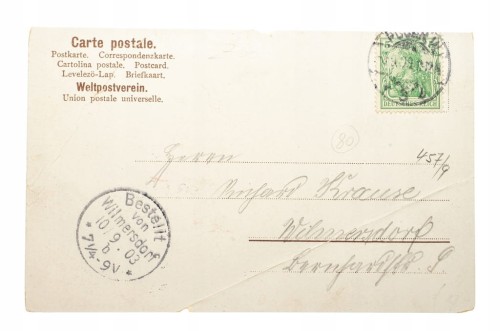 Carte postale.
Postkarte. Correspondenzkarte.
Cartolina postale. Postcard.
Levelezö-Lap. Briefkaart.
Weltpostverein.
Union postale universelle.
80
457/9
Herrn
Krause
Wilmersdorf
Bestellt
von
Wilmersdorf
10/9.03
b
* 7¼-9V *